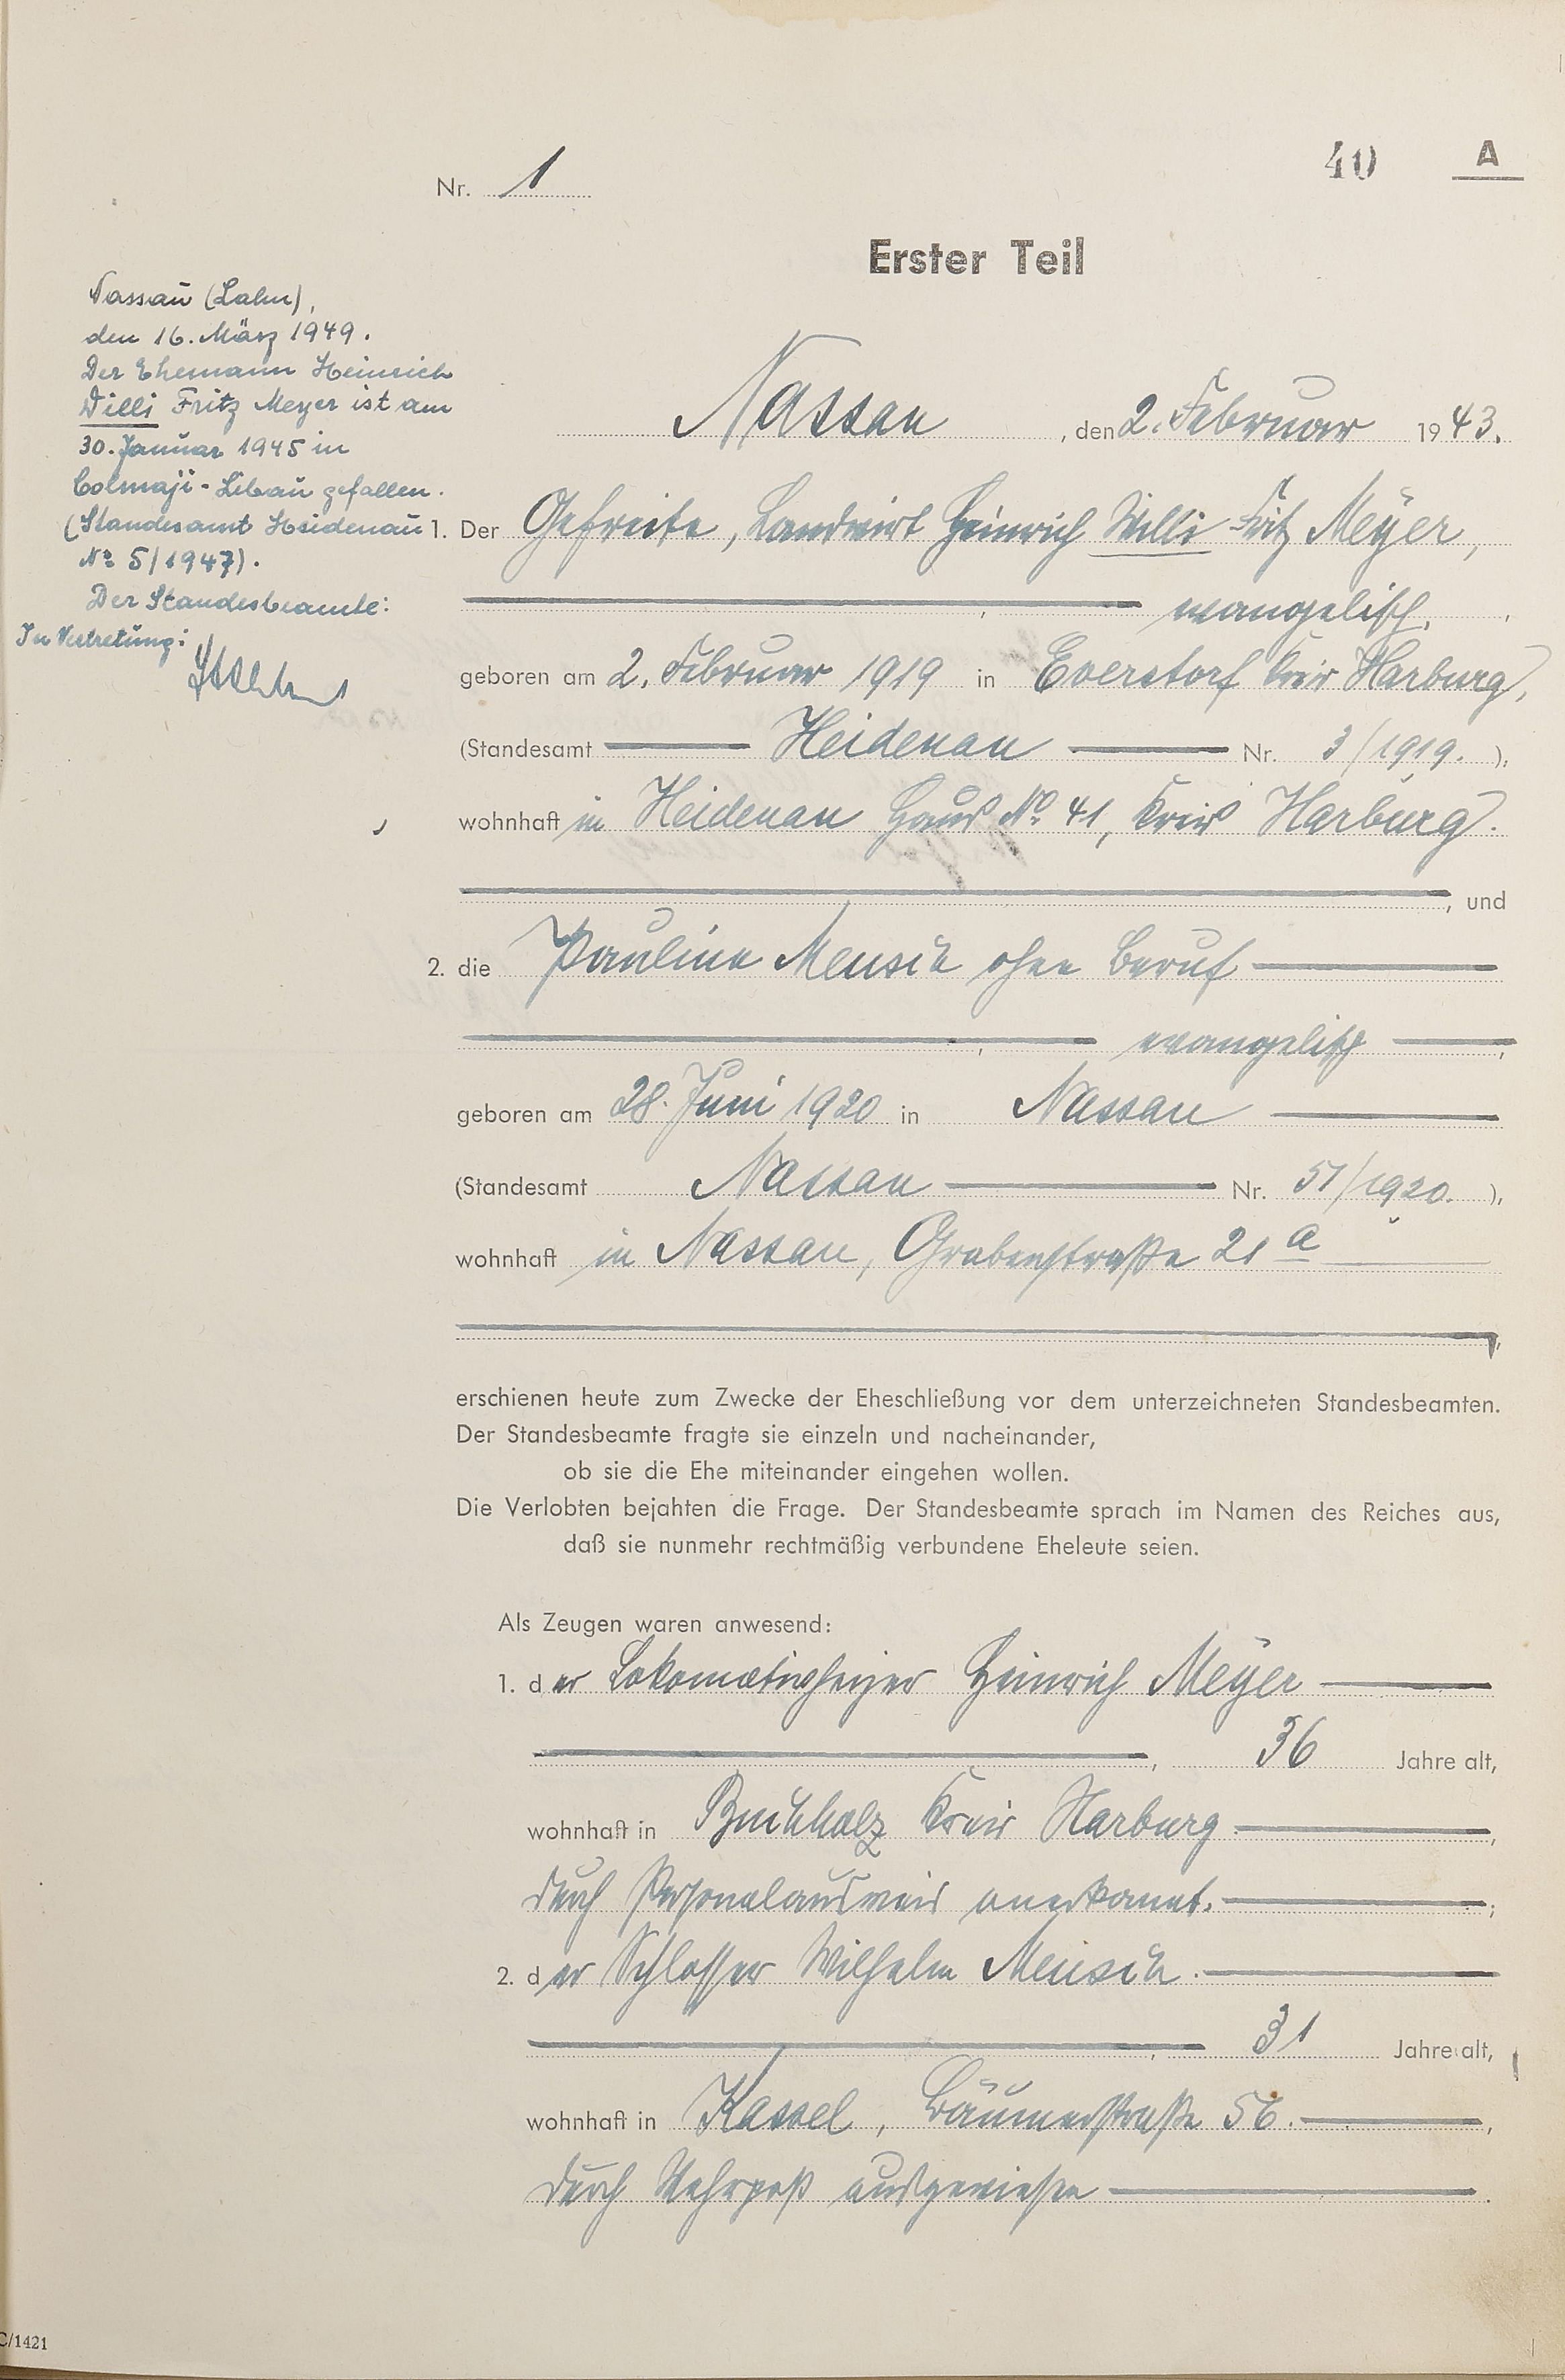 Nr. 1
40 A
Erster Teil
Nassau (Lahn),
den 16. März 1949.
Der Ehemann Heinrich
Willi Fritz Meyer ist am
30. Januar 1945 in
Colmaji-Libau gefallen.
(Standesamt Heidenau
No 5/1947).
Der Standesbeamte:
In Vertretung:
Nassau, den 2. Februar 1943.
1. Der Gefreite, Landwirt Heinrich Willi Fritz Meyer,
evangelisch,
geboren am 2. Februar 1919 in Everstorf Kreis Harburg,
(Standesamt Heidenau Nr. 3/1919.),
wohnhaft in Heidenau Haus No. 41, Kreis Harburg.
, und
2. die Pauline Mensch ohne Beruf
, evangelisch,
geboren am 28. Juni 1920 in Nassau
(Standesamt Nassau Nr. 51/1920.),
wohnhaft in Nassau, Grabenstraße 21 a
erschienen heute zum Zwecke der Eheschließung vor dem unterzeichneten Standesbeamten.
Der Standesbeamte fragte sie einzeln und nacheinander,
ob sie die Ehe miteinander eingehen wollen.
Die Verlobten bejahten die Frage. Der Standesbeamte sprach im Namen des Reiches aus,
daß sie nunmehr rechtmäßig verbundene Eheleute seien.
Als Zeugen waren anwesend:
1. der Lokomotivheizer Heinrich Meyer
, 36 Jahre alt,
wohnhaft in Buchholz Kreis Harburg,
durch Personalausweis anerkannt.;
2. der Schlosser Wilhelm Mensch.
, 31 Jahre alt,
wohnhaft in Kassel, Bäumerstraße 56.,
durch Wehrpaß ausgewießen.
C/1421